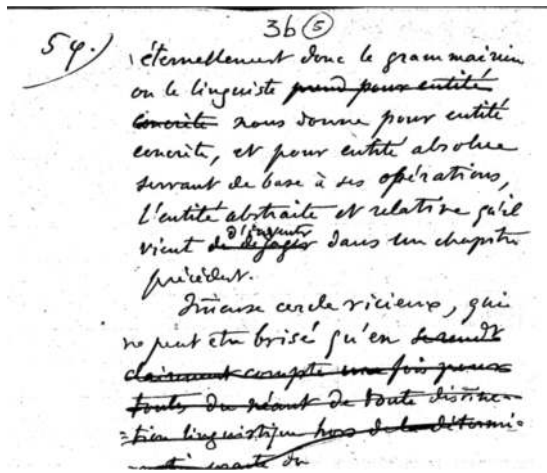 3b ⑤
5 φ.)
éternellement donc le grammairien
ou le linguiste prend pour entité
concrète nous donne pour entité
concrète, et pour entité absolue
servant de base à ses opérations,
l'entité abstraite et relative qu'il
d'inventer
vient de dégager dans un chapitre
précédent.
Immense cercle vicieux, qui
ne peut être brisé qu'en se rendt
clairement compte une fois pour
toutes du néant de toute distinc-
-tion linguistique hors de la détermi-
exacte du